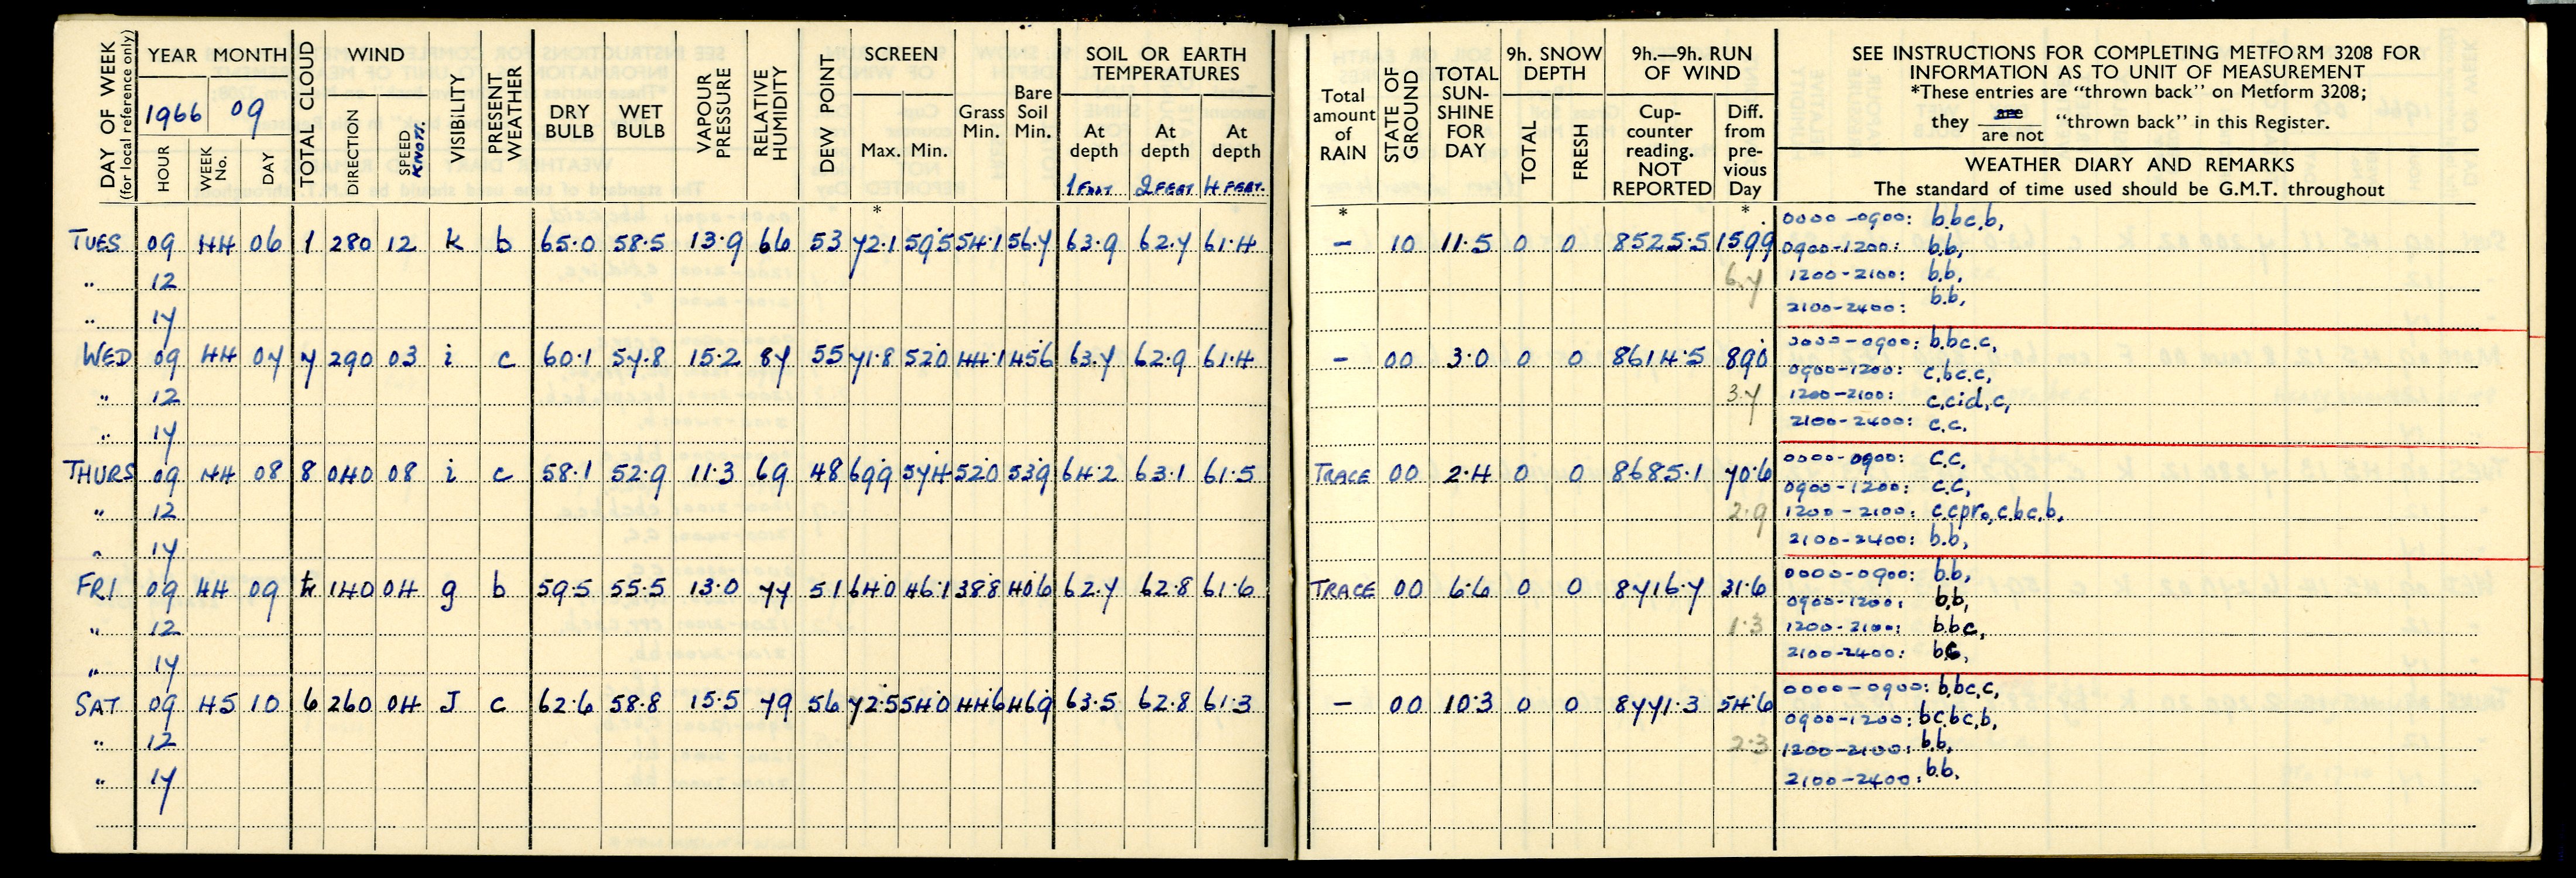 DAY OF WEEK
(for local reference only)
YEAR MONTH
1966 09
HOUR
WEEK No.
DAY
TOTAL CLOUD
WIND
DIRECTION
SPEED
KNOTS.
VISIBILITY
PRESENT WEATHER
DRY BULB
WET BULB
VAPOUR PRESSURE
RELATIVE HUMIDITY
DEW POINT
SCREEN
Max. Min.
*
Grass Min.
Bare Soil Min.
SOIL OR EARTH
TEMPERATURES
At depth At depth At depth
1 FOOT 2 FEET 4 FEET.
Total amount of RAIN
*
STATE OF GROUND
TOTAL SUN-SHINE FOR DAY
9h. SNOW DEPTH
TOTAL
FRESH
9h.—9h. RUN OF WIND
Cup-counter reading. NOT REPORTED
Diff. from pre-vious Day
*
SEE INSTRUCTIONS FOR COMPLETING METFORM 3208 FOR
INFORMATION AS TO UNIT OF MEASUREMENT
*These entries are “thrown back” on Metform 3208;
they are / are not “thrown back” in this Register.
WEATHER DIARY AND REMARKS
The standard of time used should be G.M.T. throughout
TUES 09 44 06 1 280 12 k b 65.0 58.5 13.9 66 53 72.1 59.5 54.1 56.7 63.9 62.7 61.4 – 10 11.5 0 0 8525.5 159.9
.. 12 6.7
.. 17
0000-0900: b.bc.b,
0900-1200: b.b,
1200-2100: b.b,
2100-2400: b.b,
WED 09 44 07 7 290 03 i c 60.1 57.8 15.2 87 55 71.8 52.0 44.1 45.6 63.7 62.9 61.4 – 00 3.0 0 0 8614.5 89.0
.. 12 3.7
.. 17
0000-0900: b.bc.c,
0900-1200: c.bc.c,
1200-2100: c.cid.c,
2100-2400: c.c.
THURS 09 44 08 8 040 08 i c 58.1 52.9 11.3 69 48 69.9 57.4 52.0 53.9 64.2 63.1 61.5 TRACE 00 2.4 0 0 8685.1 70.6
.. 12 2.9
.. 17
0000-0900: c.c,
0900-1200: c.c,
1200-2100: c.cpr₀,c.bc.b,
2100-2400: b.b,
FRI 09 44 09 140 04 g b 59.5 55.5 13.0 77 51 64.0 46.1 38.8 40.6 62.7 62.8 61.6 TRACE 00 6.6 0 0 8716.7 31.6
.. 12 1.3
.. 17
0000-0900: b.b,
0900-1200: b.b,
1200-2100: b.bc,
2100-2400:
SAT 09 45 10 6 260 04 J c 62.6 58.8 15.5 79 56 72.5 54.0 44.6 46.9 63.5 62.8 61.3 – 00 10.3 0 0 8771.3 54.6
.. 12 2.3
.. 17
0000-0900: b.bc.c,
0900-1200: bc.bc.b,
1200-2100: b.b,
2100-2400: b.b,